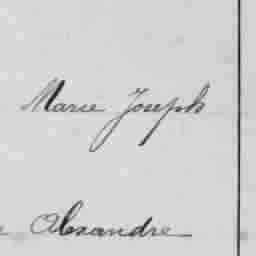 Marie Joseph
Alexandre